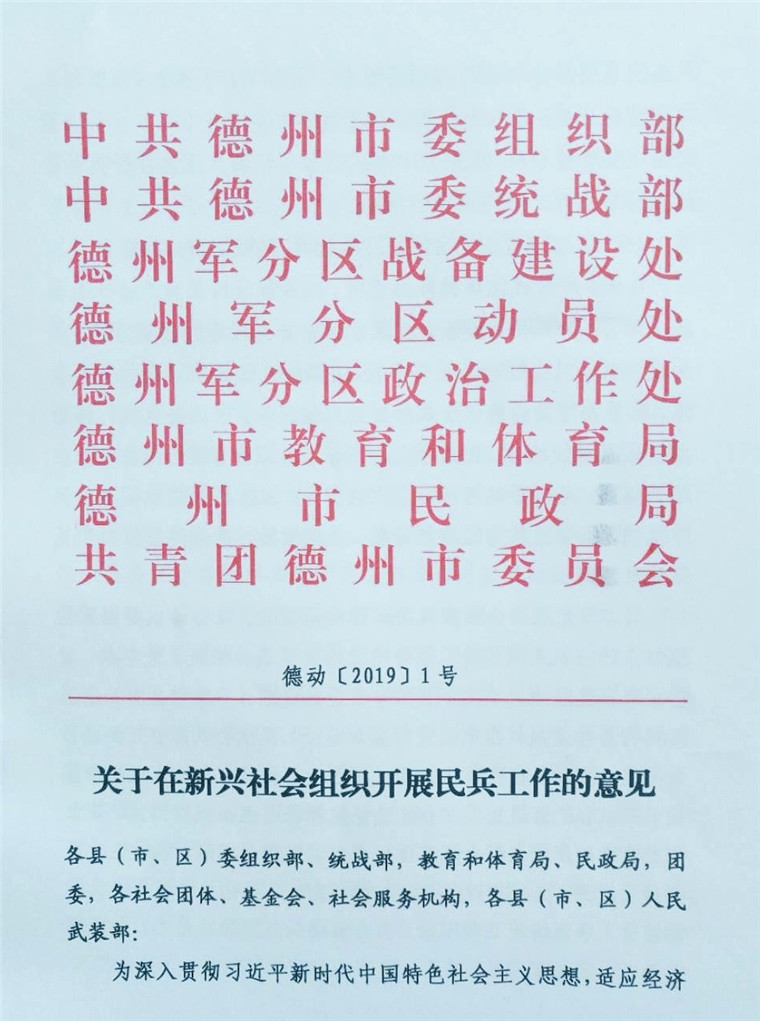 中共德州市委组织部
中共德州市委统战部
德州军分区战备建设处
德州军分区动员处
德州军分区政治工作处
德州市教育和体育局
德州市民政局
共青团德州市委员会
德动〔2019〕1号
关于在新兴社会组织开展民兵工作的意见
各县（市、区）委组织部、统战部，教育和体育局、民政局，团
委，各社会团体、基金会、社会服务机构，各县（市、区）人民
武装部：
为深入贯彻习近平新时代中国特色社会主义思想，适应经济